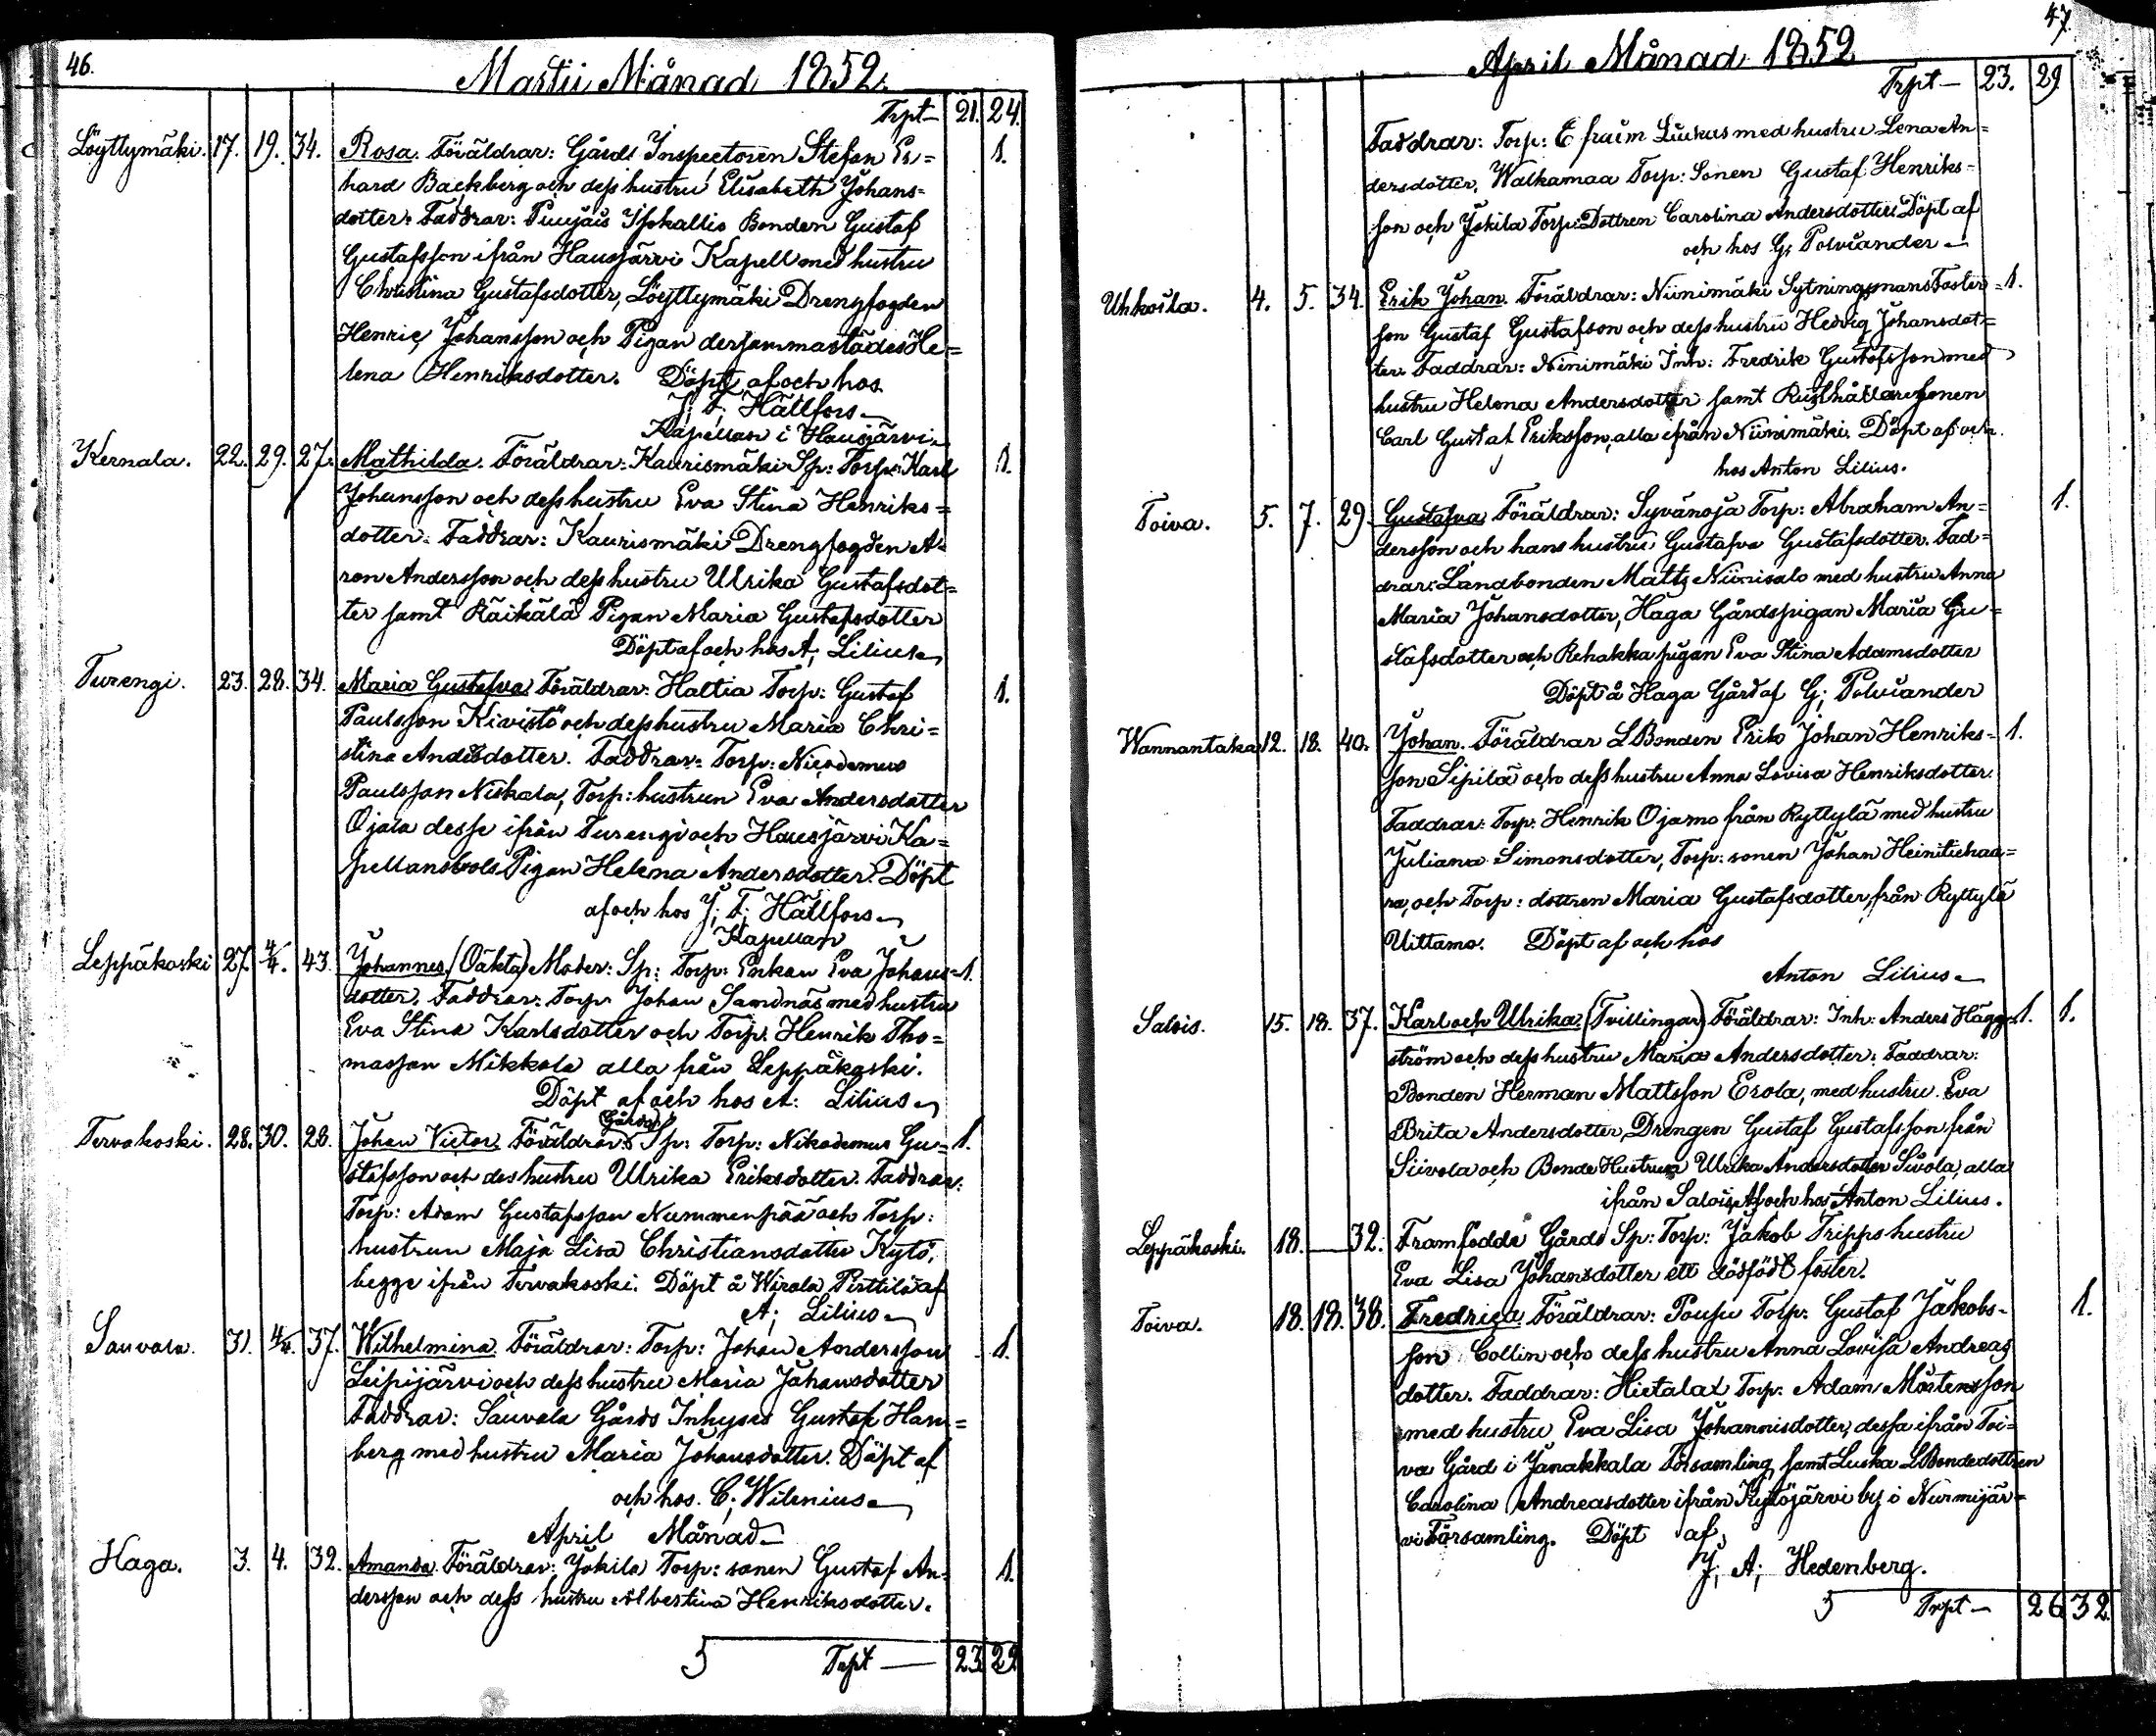 46.
Martii Månad 1852.
Trpt — 21. 24.
Löyttymäki. 17. 19. 34. Rosa. Föräldrar: Gårds Inspectoren Stefan Er= 1.
hard Backberg och dess hustru Elisabeth Johans=
dotter. Faddrar: Puujais Isokallio Bonden Gustaf
Gustafsson ifrån Hausjärvi Kapell med hustru
Christina Gustafsdotter, Löyttymäki Drengfogden
Henric Johansson och Pigan dersammastädes He=
lena Henriksdotter. Döpt af och hos
J; F; Hällfors
Kapellan i Hausjärvi
Kernala. 22. 29. 27. Mathilda. Föräldrar: Kaurismäki Sp: Torp: Karl 1.
Johansson och dess hustru Eva Stina Henriks=
dotter. Faddrar: Kaurismäki Drengfogden A=
ron Andersson och dess hustru Ulrika Gustafsdot=
ter samt Räikälä Pigan Maria Gustafsdotter
Döpt af och hos A; Lilius
Turengi. 23. 28. 34. Maria Gustafva. Föräldrar: Hattia Torp: Gustaf 1.
Paulsson Kivistö och dess hustru Maria Chri=
stina Andersdotter. Faddrar: Torp: Nicodemus
Paulsson Niskala, Torp: hustrun Eva Andersdotter
Ojala desse ifrån Turengi och Hausjärvi Ka=
pellansbols Pigan Helena Andersdotter. Döpt
af och hos J; F; Hällfors
Kapellan
Leppäkoski 27. 4/4. 43. Johannes. (Oäkta) Moder: Sp: Torp: Enkan Eva Johans= 1.
dotter. Faddrar: Torp: Johan Sandnäs med hustru
Eva Stina Karlsdotter och Torp: Henrik Tho=
masson Mikkola alla från Leppäkoski.
Döpt af och hos A: Lilius
Tervakoski. 28. 30. 28. Johan Victor. Föräldrar: Gårds Sp: Torp: Nikodemus Gu= 1.
stafsson och des hustru Ulrika Eriksdotter. Faddrar:
Torp: Adam Gustafsson Nummenpää och Torp:
hustrun Maja Lisa Christiansdotter Kytö,
begge ifrån Tervakoski. Döpt å Wirala Pirttilä af
A; Lilius
Sauvala. 31. 4/4. 37. Wilhelmina. Föräldrar: Torp: Johan Andersson 1.
Leipijärvi och dess hustru Maria Johansdotter
Faddrar: Sauvala Gårds Inhyses Gustaf Ham=
berg med hustru Maria Johansdotter. Döpt af
och hos C; Wilenius
April Månad
Haga. 3. 4. 32. Amanda. Föräldrar: Jokila Torp: sonen Gustaf An= 1.
dersson och dess hustru Albertina Henriksdotter.
5 Trpt — 23 29
47.
April Månad 1852
Trpt — 23. 29
Faddrar: Torp: Efraim Liukus med hustru Lena An=
dersdotter, Walkamaa Torp: Sonen Gustaf Henriks=
son och Jokila Torp: Dottren Carolina Andersdotter. Döpt af
och hos G; Polviander
Uhkoila. 4. 5. 34. Erik Johan. Föräldrar: Niinimäki Sytningsmans Foster= 1.
son Gustaf Gustafson och dess hustru Hedvig Johansdot=
ter. Faddrar: Ninimäki Inh: Fredrik Gustafsson med
hustru Helena Andersdotter samt Rusthållaresonen
Carl Gustaf Eriksson, alla ifrån Niinimäki. Döpt af och
hos Anton Lilius.
Toiva. 5. 7. 29. Gustafva Föräldrar: Syvänoja Torp: Abraham An= 1.
dersson och hans hustru Gustafva Gustafsdotter. Fad=
drar: Landbonden Matts Niinisalo med hustru Anna
Maria Johansdotter, Haga Gårdspigan Maria Gu=
stafsdotter och Rehakka pigan Eva Stina Adamsdotter
Döpt å Haga Gård af G; Polviander
Wannantaka 12. 18. 40. Johan. Föräldrar L Bonden Erik Johan Henriks= 1.
son Sipilä och dess hustru Anna Lovisa Henriksdotter.
Faddrar: Torp: Henrik Ojamo från Ryttylä med hustru
Juliana Simonsdotter, Torp: sonen Johan Heinitiehaa=
ra, och Torp: dottren Maria Gustafsdotter från Ryttylä
Uittamo. Döpt af och hos
Anton Lilius
Salois. 15. 18. 37. Karl och Ulrika. (Tvillingar) Föräldrar: Inh: Anders Hägg= 1. 1.
ström och dess hustru Maria Andersdotter. Faddrar:
Bonden Herman Mattsson Erola, med hustru Eva
Brita Andersdotter, Drengen Gustaf Gustafsson från
Siivola och Bonde Hustrun Ulrika Andersdotter Sivola, alla
ifrån Salois. Af och hos Anton Lilius.
Leppäkoski. 18. — 32. Framfödde Gårds Sp: Torp: Jakob Tripps hustru
Eva Lisa Johansdotter ett dödfödt foster.
Toiva. 18. 18. 38. Fredrica. Föräldrar: Poupu Torp: Gustaf Jakobs- 1.
son Collin och dess hustru Anna Lovisa Andreas
dotter. Faddrar: Hietalax Torp: Adam Mårtensson
med hustru Eva Lisa Johannisdotter, dessa ifrån Toi=
va Gård i Janakkala Församling, samt Luska LBondedottren
Carolina Andreasdotter ifrån Kytöjärvi by i Nurmijär=
vi Församling. Döpt af
J; A; Hedenberg.
5 Trpt — 26 32.